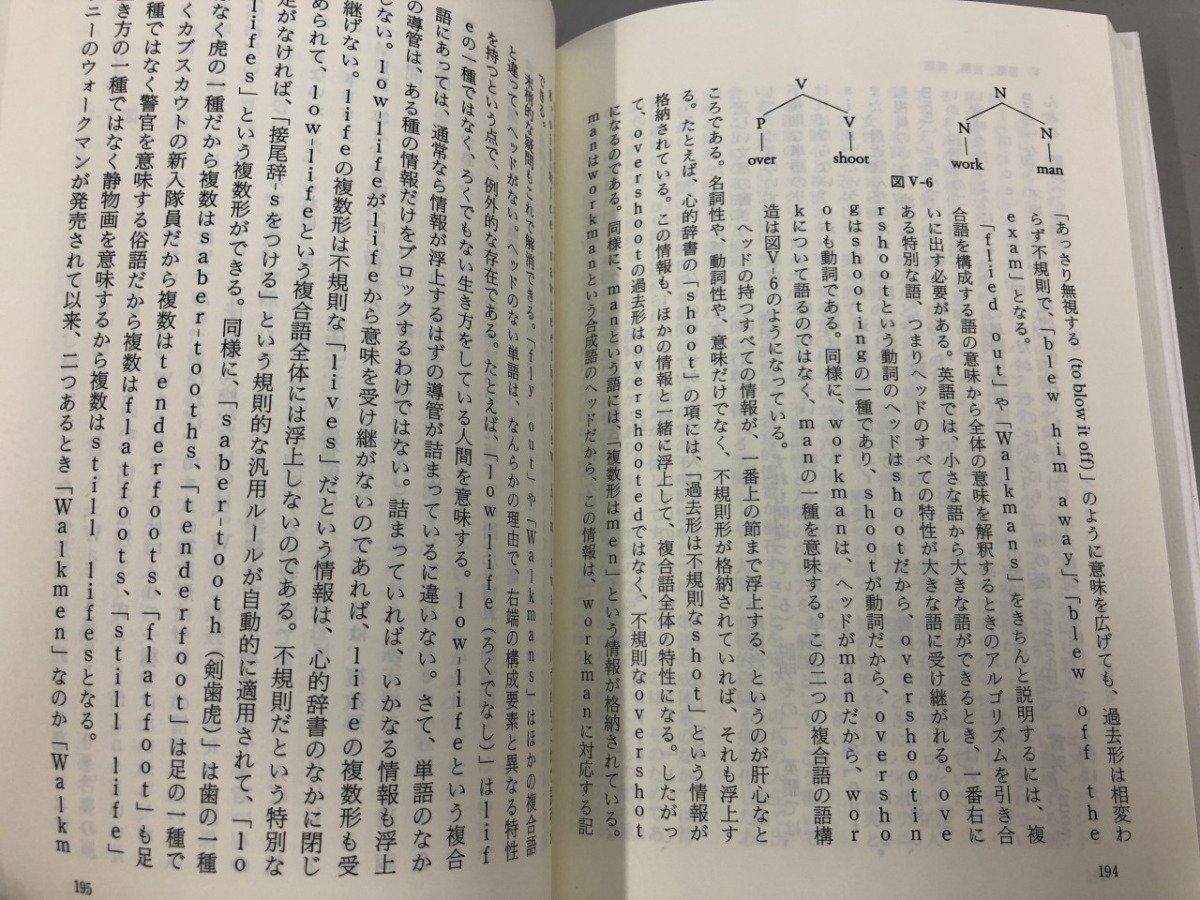 N
N N
work man
V
P V
over shoot
図V-6
「あっさり無視する (to blow it off)」のように意味を広げても、過去形は相変わ
らず不規則で、「blew him away」、「blew off the
exam」となる。
「flied out」や「Walkmans」をきちんと説明するには、複
合語を構成する語の意味から全体の意味を解釈するときのアルゴリズムを引き合
いに出す必要がある。英語では、小さな語から大きな語ができるとき、一番右に
ある特別な語、つまりヘッドのすべての特性が大きな語に受け継がれる。ove
rshootという動詞のヘッドはshootだから、overshootin
gはshootingの一種であり、shootが動詞だから、oversho
otも動詞である。同様に、workmanは、ヘッドがmanだから、wor
kについて語るのではなく、manの一種を意味する。この二つの複合語の語構
造は図V-6のようになっている。
ヘッドの持つすべての情報が、一番上の節まで浮上する、というのが肝心なと
ころである。名詞性や、動詞性や、意味だけでなく、不規則形が格納されていれば、それも浮上す
る。たとえば、心的辞書の「shoot」の項には、「過去形は不規則なshot」という情報が
格納されている。この情報も、ほかの情報と一緒に浮上して、複合語全体の特性になる。したがっ
て、overshootの過去形はovershootedではなく、不規則なovershot
になるのである。同様に、manという語には、「複数形はmen」という情報が格納されている。
manはworkmanという合成語のヘッドだから、この情報は、workmanに対応する記
194
できる。
決情的な疑問もこれで解消できる。「fly out」や「Walkmans」はほかの複合語
と違って、ヘッドがない。ヘッドのない単語は、なんらかの理由で、右端の構成要素と異なる特性
を持つという点で、例外的な存在である。たとえば、「low-life（ろくでなし）」はlif
eの一種ではなく、ろくでもない生き方をしている人間を意味する。low-lifeという複合
語にあっては、通常なら情報が浮上するはずの導管が詰まっているに違いない。さて、単語のなか
の導管は、ある種の情報だけをブロックするわけではない。詰まっていれば、いかなる情報も浮上
しない。low-lifeがlifeから意味を受け継がないのであれば、lifeの複数形も受
け継げない。lifeの複数形は不規則な「lives」だという情報は、心的辞書のなかに閉じ
められて、low-lifeという複合語全体には浮上しないのである。不規則だという特別な
足がなければ、「接尾辞-sをつける」という規則的な汎用ルールが自動的に適用されて、「lo
lifes」という複数形ができる。同様に、「saber-tooth（剣歯虎）」は歯の一種
はなく虎の一種だから複数はsaber-tooths、「tenderfoot」は足の一種で
くカブスカウトの新入隊員だから複数はtenderfoots、「flatfoot」も足
種ではなく警官を意味する俗語だから複数はflatfoots、「still life」
き方の一種ではなく静物画を意味するから複数はstill lifesとなる。
ニーのウォークマンが発売されて以来、二つあるとき「Walkmen」なのか「Walkm
195